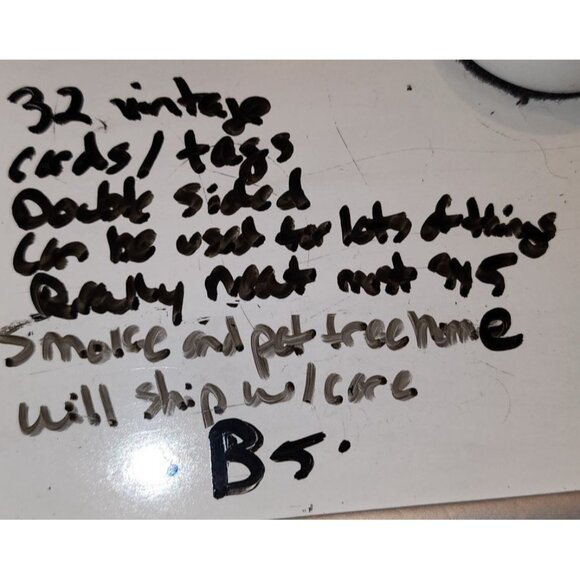 32 vintage
cards/tags
Double sided
can be used for lots of things
Really neat most 4x5
Smoke and pet free home
will ship w/care
B5.